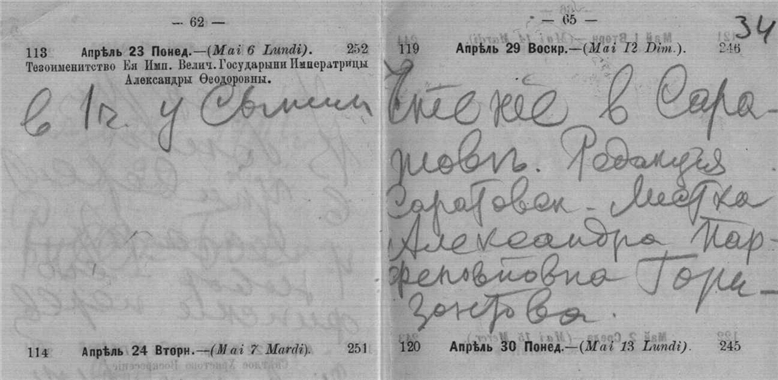 — 62 —
113 Апрѣль 23 Понед.—(Mai 6 Lundi). 252
Тезоименитство Ея Имп. Велич. Государыни Императрицы
Александры Ѳеодоровны.
в 1 ч. у
114 Апрѣль 24 Вторн.—(Mai 7 Mardi). 251
— 65 —
34
119 Апрѣль 29 Воскр.—(Mai 12 Dim.). 246
Чтение в Сара-
товѣ. Редакция
Саратовск. Листка
Александра Пар-
феновна Гори-
зонтова.
120 Апрѣль 30 Понед.—(Mai 13 Lundi). 245